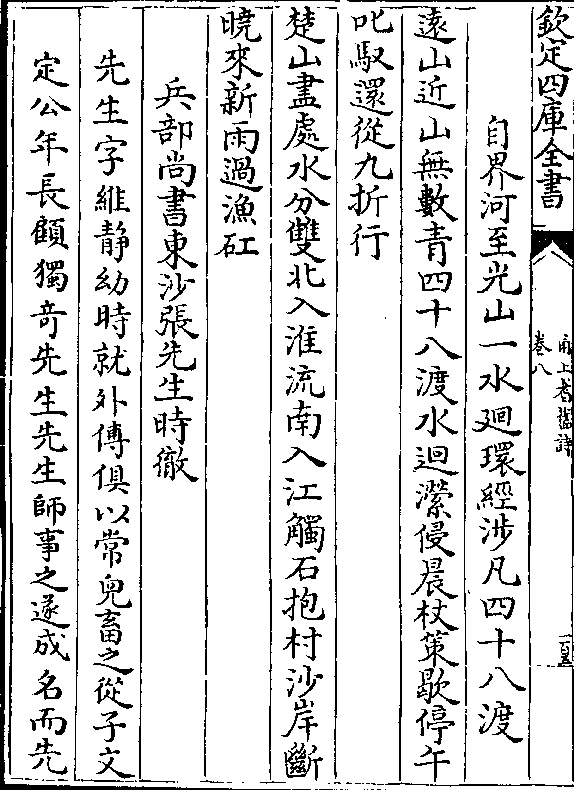 欽定四庫全書
甬上耆舊詩
卷八
自界河至光山一水廻環經涉凡四十八渡
遠山近山無數青四十八渡水迴瀠侵晨杖策歇停午
叱馭還從九折行
楚山盡處水分雙北入淮流南入江觸石抱村沙岸斷
曉來新雨過漁矼
兵部尚書東沙張先生時徹
先生字維静幼時就外傅俱以常兒畜之從子文
定公年長顧獨竒先生先生師事之遂成名而先